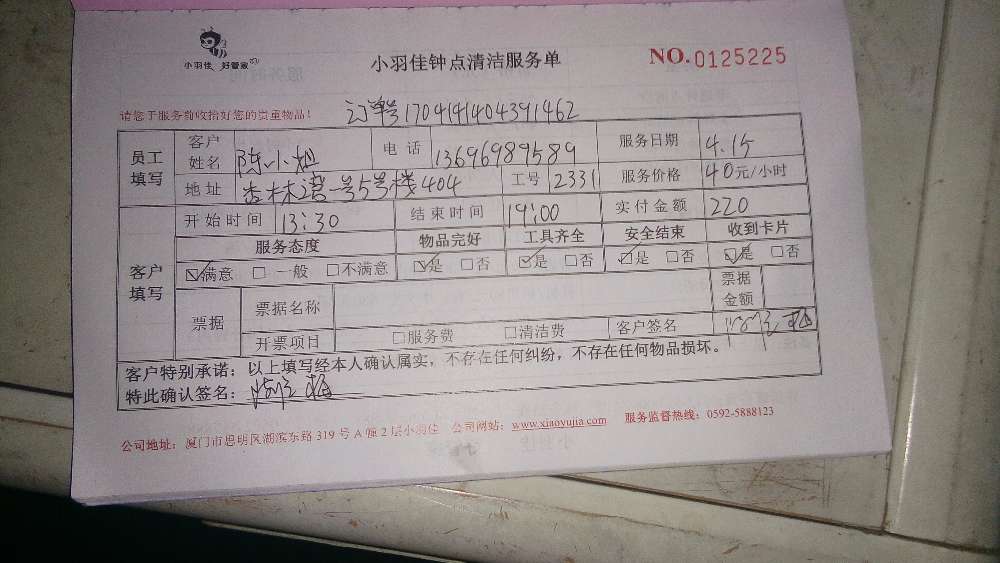 小羽佳 好管家
小羽佳钟点清洁服务单
NO.0125225
请您于服务前收拾好您的贵重物品！
订单号1704141404391462
员工填写 客户姓名 陈小姐 电话 13696989589 服务日期 4.15
地址 杏林湾一号5号栈404 工号 2331 服务价格 40元/小时
客户填写 开始时间 13:30 结束时间 19:00 实付金额 220
服务态度 物品完好 工具齐全 安全结束 收到卡片
☑满意 □一般 □不满意 ☑是 □否 ☑是 □否 ☑是 □否 ☑是 □否
票据 票据名称 票据金额
开票项目 □服务费 □清洁费 客户签名
客户特别承诺：以上填写经本人确认属实，不存在任何纠纷，不存在任何物品损坏。
特此确认签名：
公司地址：厦门市思明区湖滨东路319号A幢2层小羽佳 公司网站：www.xiaoyujia.com 服务监督热线：0592-5888123